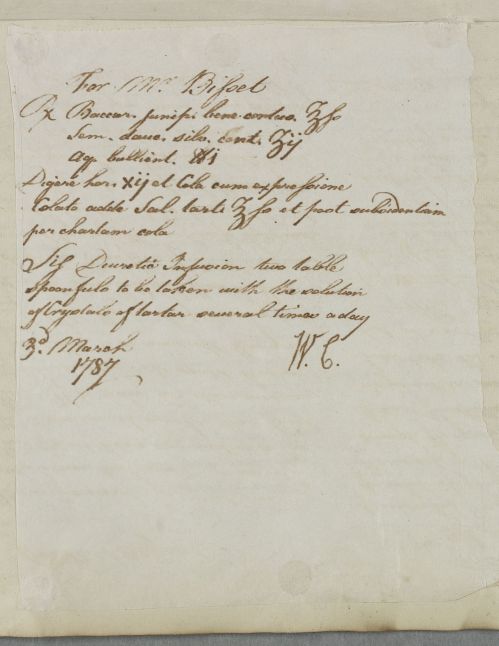 For Mr. Bisset
Rx Baccar. junip. bene contus. ℥ss
Sem. dauc. silv. cont. ʒij
Aq. bullient. ℔i
Digere hor. xij et Cola cum expressione
Colato adde Sal. tart. ʒss et post subsidentiam
per chartam cola
Sig Diuretic Infusion two table
spoonfuls to be taken with the solution
of Crystals of tartar several times a day
3d. March
1787
W. C.